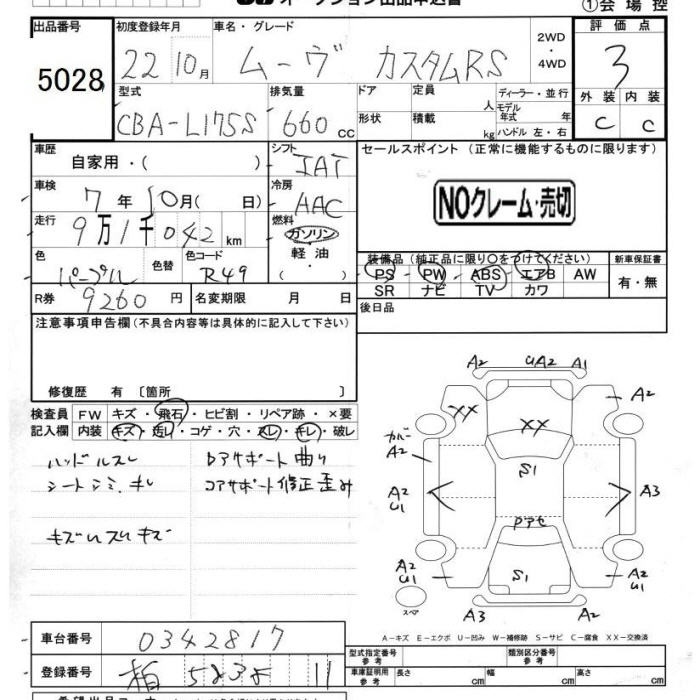 オークション出品申込書
①会場控
出品番号
5028
初度登録年月
22 10月
車名・グレード
ムーヴ カスタムRS
2WD
・
4WD
評価点
3
外装 内装
C C
型式
CBA-L175S
排気量
660 cc
ドア
形状
定員 人
積載 kg
ディーラー・並行
モデル年式 年
ハンドル 左・右
車歴
自家用・( )
シフト
IAT
車検
7年 10月( 日)
冷房
AAC
走行
9万1千042 km
燃料
ガソリン
・
軽油
・
( )
色
パープル
色替
色コード
R49
R券
9260円
名変期限 月 日
セールスポイント (正常に機能するものに限ります)
NOクレーム・売切
装備品 (純正品に限り〇をつけてください)
PS PW ABS エアB AW
SR ナビ TV カワ
新車保証書
有・無
後日品
注意事項申告欄(不具合内容等は具体的に記入して下さい)
修復歴 有 〔箇所 〕
検査員記入欄
FW キズ・飛石・ヒビ割・リペア跡・×要
内装 キズ・汚レ・コゲ・穴・スレ・キレ・破レ
ハンドルスレ
シートシミ、キレ
キズUスリキズ
Dアサポート曲り
コアサポート修正歪み
A2 UA2 A1
XX XX A2
カバー
A2
S1
A2
U1
A3
アセ
A2
U1
S1
A2
U1
スペア
A3 A2
A-キズ E-エクボ U-凹み W-補修跡 S-サビ C-腐食 XX-交換済
車台番号
0342817
登録番号
柏 11
型式指定番号
参考
類別区分番号
参考
車庫証明用
参考
長さ cm 幅 cm 高さ cm